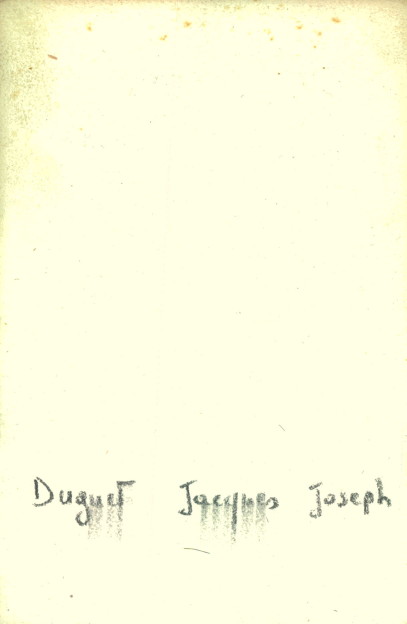 Duguet Jacques Joseph